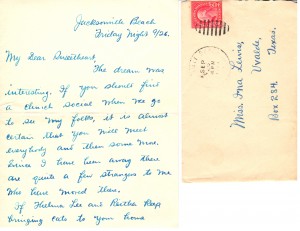 Jacksonville Beach
Friday Night 9/26.
My Dear Sweetheart,
The dream was
interesting. If you should find
a church social when we go
to see my folks, it is almost
certain that you will meet
everybody and then some more.
Since I have been away there
are quite a few strangers to me
who have moved there.
If Thelma Lee and Bertha
bringing cats to your home
SEP
PM
Miss Ina Lewis,
Uvalde,
Texas.
Box 234.